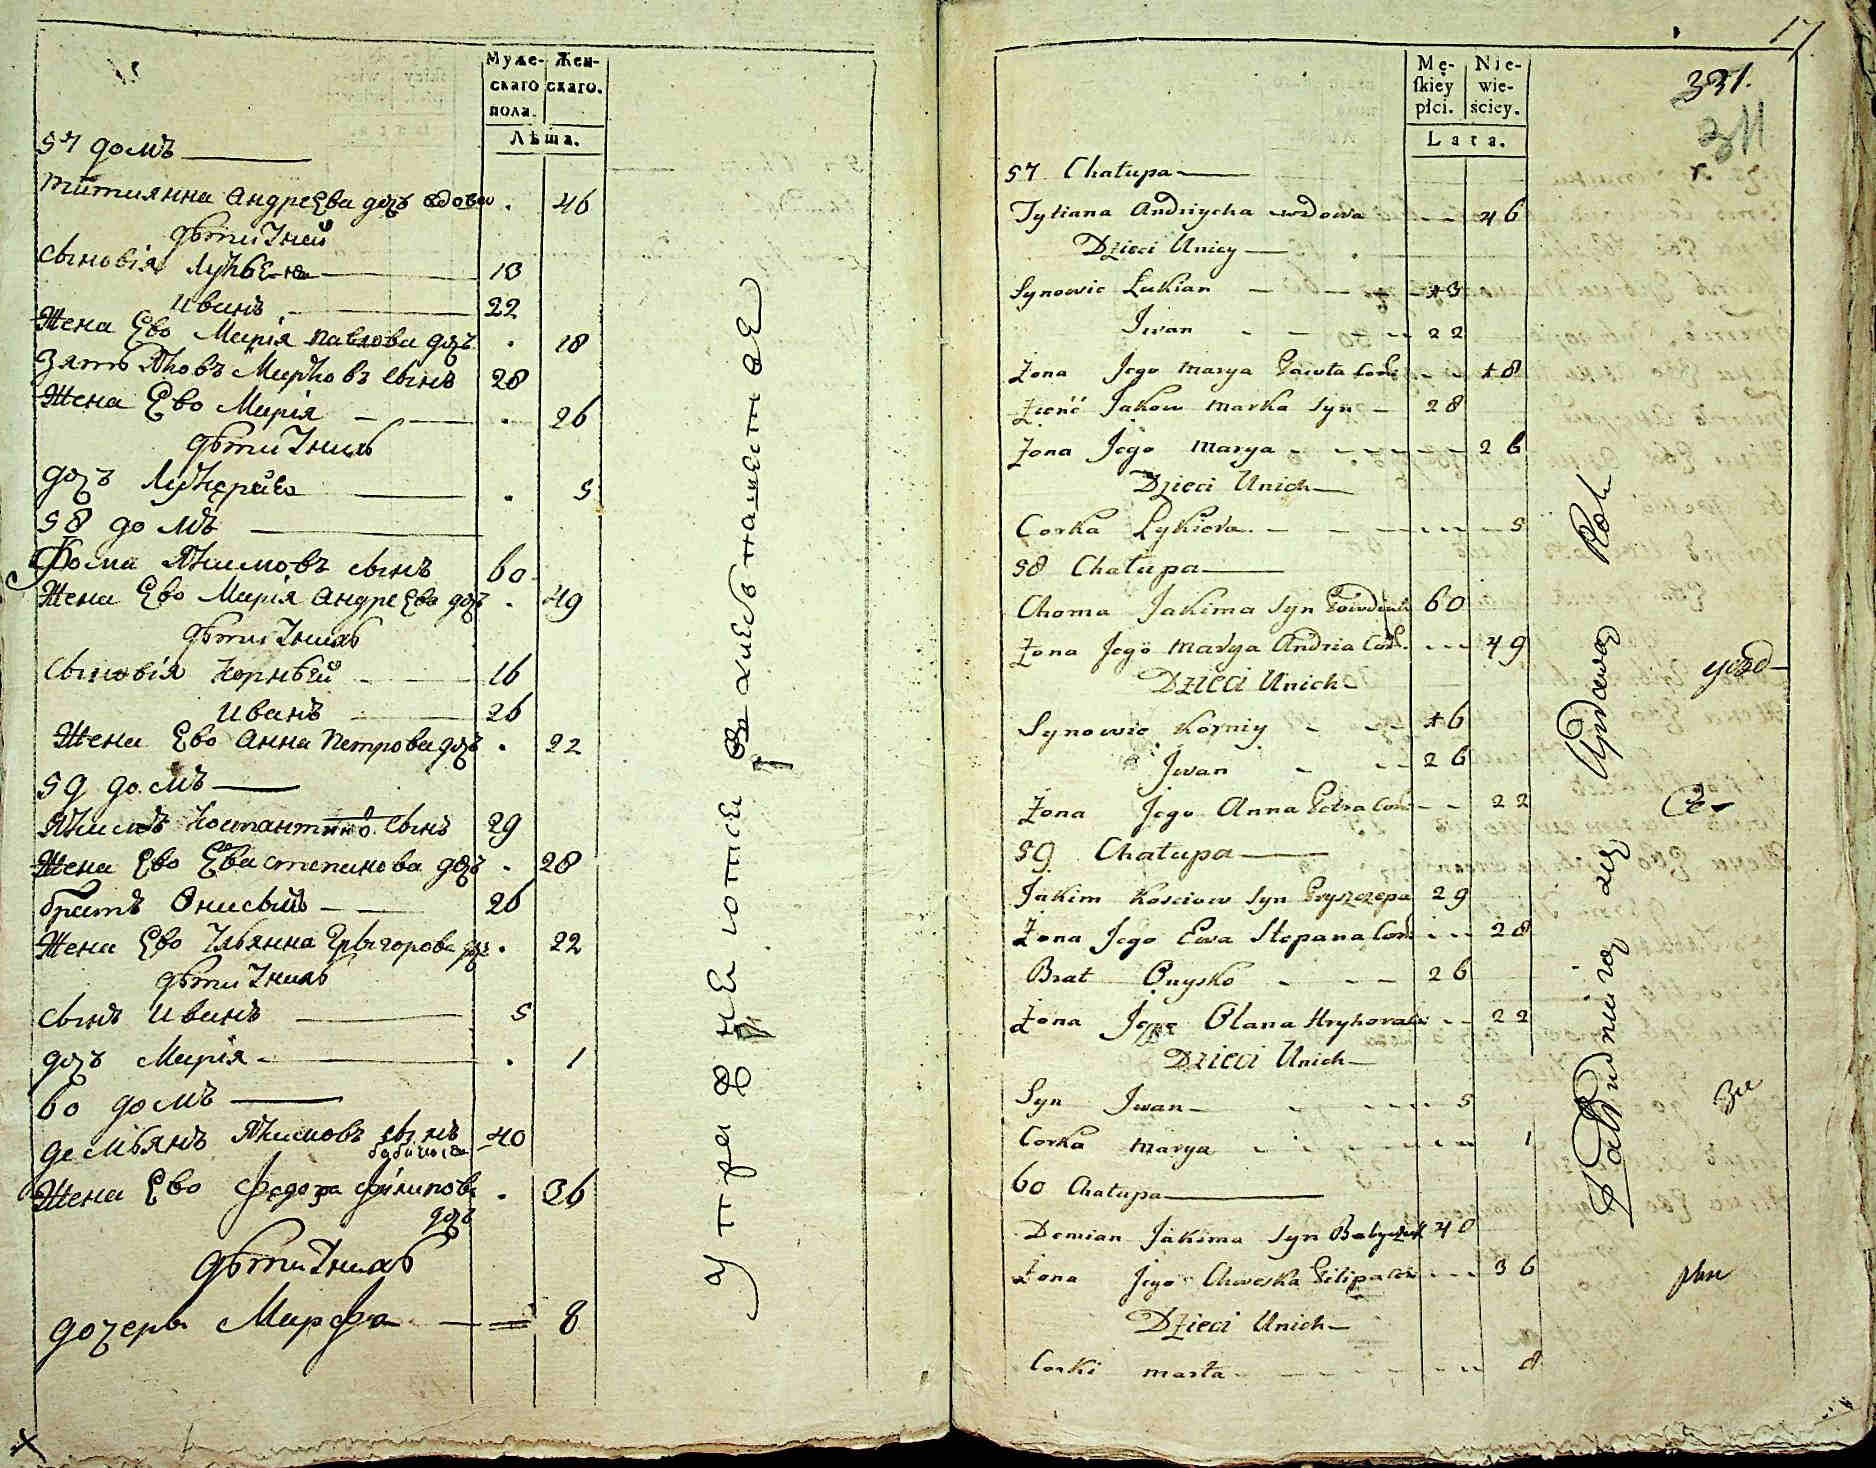 Муже-
скаго
пола.
Жен-
скаго.
Лѣта.
57 домъ
Титиянна Андреева дочъ вдова 46
дѣти Унѣй
Сыновія Лукьенъ 13
Иванъ 22
Жена Ево Марія Павлова дочъ 18
Зятъ Яковъ Марковъ сынъ 28
Жена Ево Марія 26
дѣти Унихъ
дочъ 5
58 домъ
Фома Якимовъ сынъ 60
Жена Ево Марія Андреева дочъ 49
дѣти Унихъ
Сыновія Корнѣй 16
Иванъ 26
Жена Ево Анна Петрова дочъ 22
59 домъ
Якимъ Костантиновъ Сынъ 29
Жена Ево Ева степанова дочъ 28
братъ Онисько 26
Жена Ево Ульянна Грыгорова доч 22
дѣти Унихъ
Сынъ Иванъ 5
дочъ Марія 1
60 домъ
Демьянъ Якимовъ сынъ 40
Жена Ево Федора Филипова 36
дочъ
дѣти Унихъ
дочерь Марфа 8
17
Mę-
skiey
płci.
Nie-
wie-
ściey.
Lata.
331.
311
57 Chałupa
Tytiana Andriycha wdowa 46
Dzieci Unicy
Synowie Łukian 13
Jwan 22
Żona Jego Marya Pawła Cor. 18
Zięść Jakow Marka Syn 28
Żona Jego Marya 26
Dzieci Unich
Corka Łykiera 5
58 Chałupa
Choma Jakima Syn 60
Żona Jego Marya Andria Cor. 49
Dzieci Unich
Synowie Korniy 16
Jwan 26
Żona Jego Anna Petra Cor. 22
59 Chałupa
Jakim Kosciow Syn Pryszczepa 29
Żona Jego Ewa Stepana Cor. 28
Brat Onysko 26
Żona Jego Olana Hryhora Cor. 22
Dzieci Unich
Syn Jwan 5
Corka Marya 1
60 Chałupa
Demian Jakima Syn 40
Żona Jego Chweska Filipa Cor. 36
Dzieci Unich
Corki Marta 8